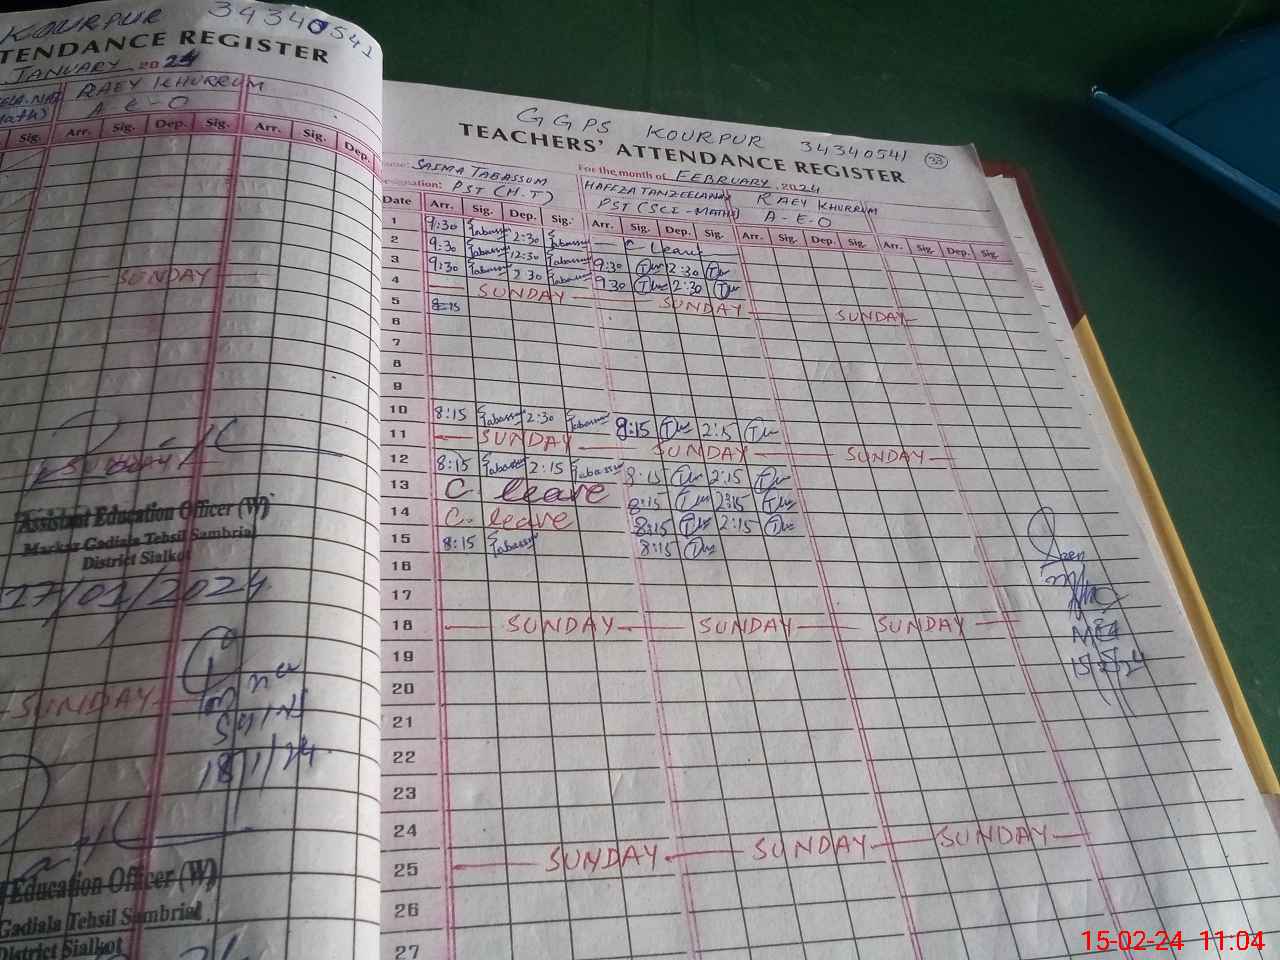 KOURPUR 34340541
TENDANCE REGISTER
JANUARY 2024
RAEY KHURRUM
A E - O
Sig. Arr. Sig. Dep. Sig. Arr. Sig. Dep.
SUNDAY
SUNDAY
Assistant Education Officer (W)
Markaz Gadiala Tehsil Sambrial
District Sialkot
17/01/2024
SUNDAY
18/1/24
Education Officer (W)
Gadiala Tehsil Sambrial
District Sialkot
GGPS KOURPUR 34340541 33
TEACHERS' ATTENDANCE REGISTER
Name: SAIMA TABASSUM For the month of FEBRUARY 2024
Designation: PST (H.T) HAFIZA TANZEELANAZ RAEY KHURRUM
PST (SCI-MATH) A-E-O
Date Arr. Sig. Dep. Sig. Arr. Sig. Dep. Sig. Arr. Sig. Dep. Sig. Arr. Sig. Dep. Sig.
1 9:30 Tabassum 2:30 Tabassum C Leave
2 9:30 Tabassum 12:30 Tabassum 9:30 2:30
3 9:30 Tabassum 2 30 Tabassum 9 30 2:30
4 SUNDAY SUNDAY SUNDAY
5 8:15
6
7
8
9
10 8:15 Tabassum 2:30 Tabassum 8:15 2:15
11 SUNDAY SUNDAY SUNDAY
12 8:15 Tabassum 2:15 Tabassum 8:15 2:15
13 C. leave 8:15 2:15
14 C. leave 8:15 2:15
15 8:15 Tabassum 8:15
16
17
18 SUNDAY SUNDAY SUNDAY
19
20
21
22
23
24
25 SUNDAY SUNDAY SUNDAY
26
27
MEA
15-02-24 11:04